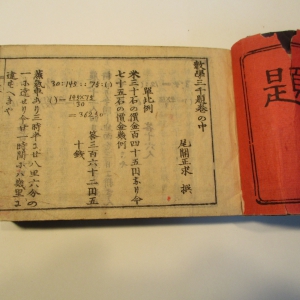 數學三千題巻の中
尾關正求 撰
單比例
米三十石の價金百四十五円なり今
七十五石の價金幾何
答三百六十二円五
十銭
30:145::75:()
()=145×75
30
=362.50
蒸氣車あり三時半に廿八里六分の
一に達せり今廿一時間に
達すべきや
題